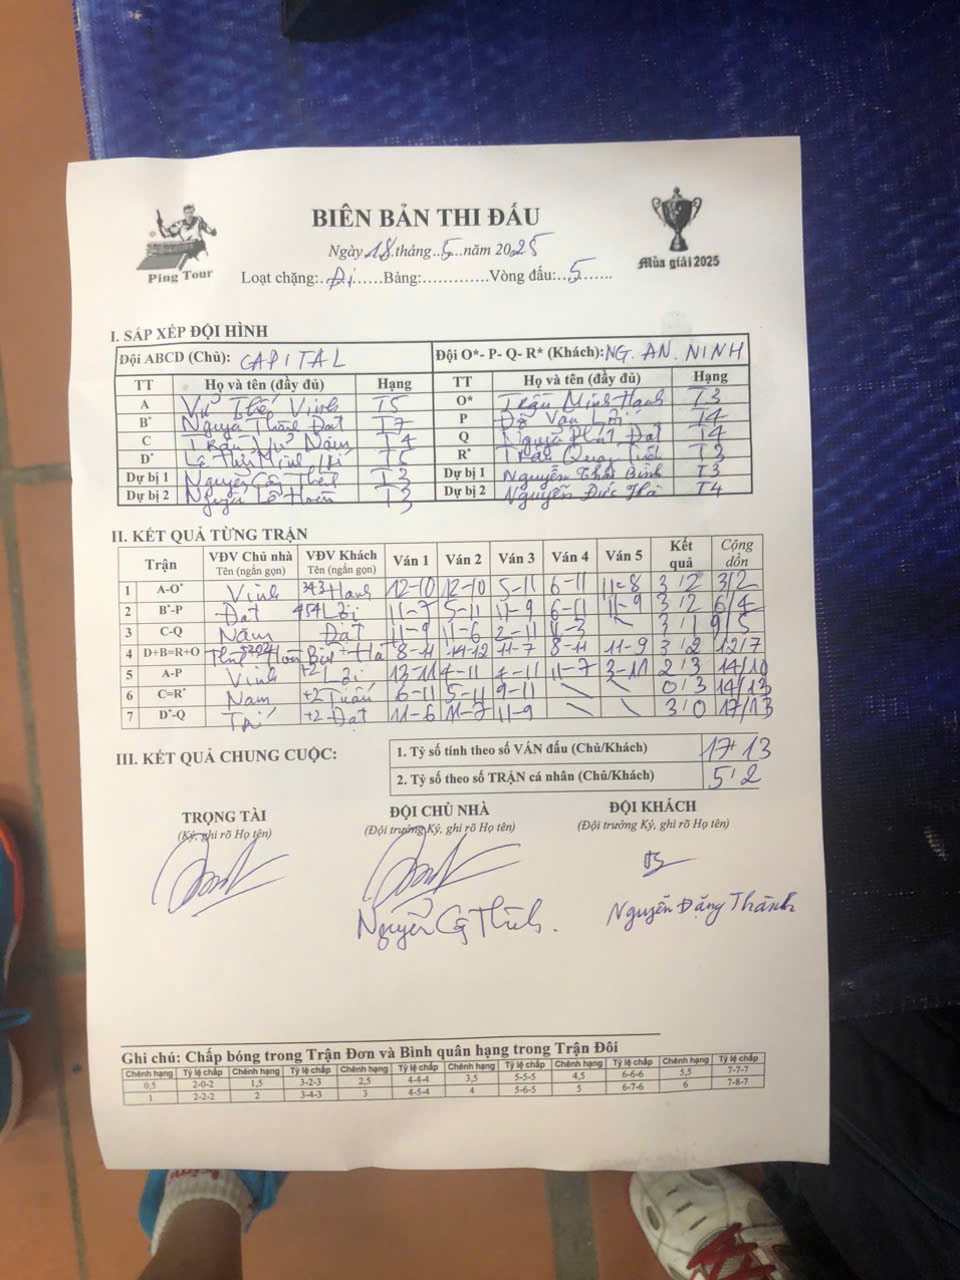 BIÊN BẢN THI ĐẤU
Ngày 18 tháng 5 năm 2025
Loạt chặng: Đi Bảng: Vòng đấu: 5
Ping Tour
Mùa giải 2025
I. SẮP XẾP ĐỘI HÌNH
Đội ABCD (Chủ): CAPITAL Đội O*- P- Q- R* (Khách): NG. AN. NINH
TT Họ và tên (đầy đủ) Hạng TT Họ và tên (đầy đủ) Hạng
A Vũ Thế Vinh T5 O* Trần Minh Hanh T3
B* Nguyễn Thành Đạt T7 P Đỗ Văn Lợi T4
C Trần Vũ Năm T4 Q Nguyễn Phát Đạt T4
D* Lê Minh Trí T5 R* Trần Quang Tuấn T3
Dự bị 1 Nguyễn Thịnh T3 Dự bị 1 Nguyễn Thái Bình T3
Dự bị 2 Nguyễn Hoàn T3 Dự bị 2 Nguyễn Đức Hà T4
II. KẾT QUẢ TỪNG TRẬN
Trận VĐV Chủ nhà Tên (ngắn gọn) VĐV Khách Tên (ngắn gọn) Ván 1 Ván 2 Ván 3 Ván 4 Ván 5 Kết quả Cộng dồn
1 A-O* Vinh 343 Hanh 12-10 12-10 5-11 6-11 11-8 3/2 3/2
2 B*-P Đạt 454 Lợi 11-7 5-11 11-9 6-11 11-9 3/2 6/4
3 C-Q Năm Đạt 11-9 11-6 2-11 11-3 3/1 9/5
4 D+B=R+O 8-11 14-12 11-7 8-11 11-9 3/2 12/7
5 A-P Vinh +2 Lợi 13-11 4-11 4-11 11-7 3-11 2/3 14/10
6 C=R* Nam +2 Tuấn 6-11 5-11 9-11 0/3 14/13
7 D*-Q Trí +2 Đạt 11-6 11-7 11-9 3/0 17/13
III. KẾT QUẢ CHUNG CUỘC:
1. Tỷ số tính theo số VÁN đấu (Chủ/Khách) 17 13
2. Tỷ số theo số TRẬN cá nhân (Chủ/Khách) 5/2
TRỌNG TÀI ĐỘI CHỦ NHÀ ĐỘI KHÁCH
(Ký, ghi rõ Họ tên) (Đội trưởng Ký, ghi rõ Họ tên) (Đội trưởng Ký, ghi rõ Họ tên)
Nguyễn Thịnh. Nguyễn Đặng Thành
Ghi chú: Chấp bóng trong Trận Đơn và Bình quân hạng trong Trận Đôi
Chênh hạng Tỷ lệ chấp Chênh hạng Tỷ lệ chấp Chênh hạng Tỷ lệ chấp Chênh hạng Tỷ lệ chấp Chênh hạng Tỷ lệ chấp Chênh hạng Tỷ lệ chấp
0,5 2-0-2 1,5 3-2-3 2,5 4-4-4 3,5 5-5-5 4,5 6-6-6 5,5 7-7-7
1 2-2-2 2 3-4-3 3 4-5-4 4 5-6-5 5 6-7-6 6 7-8-7